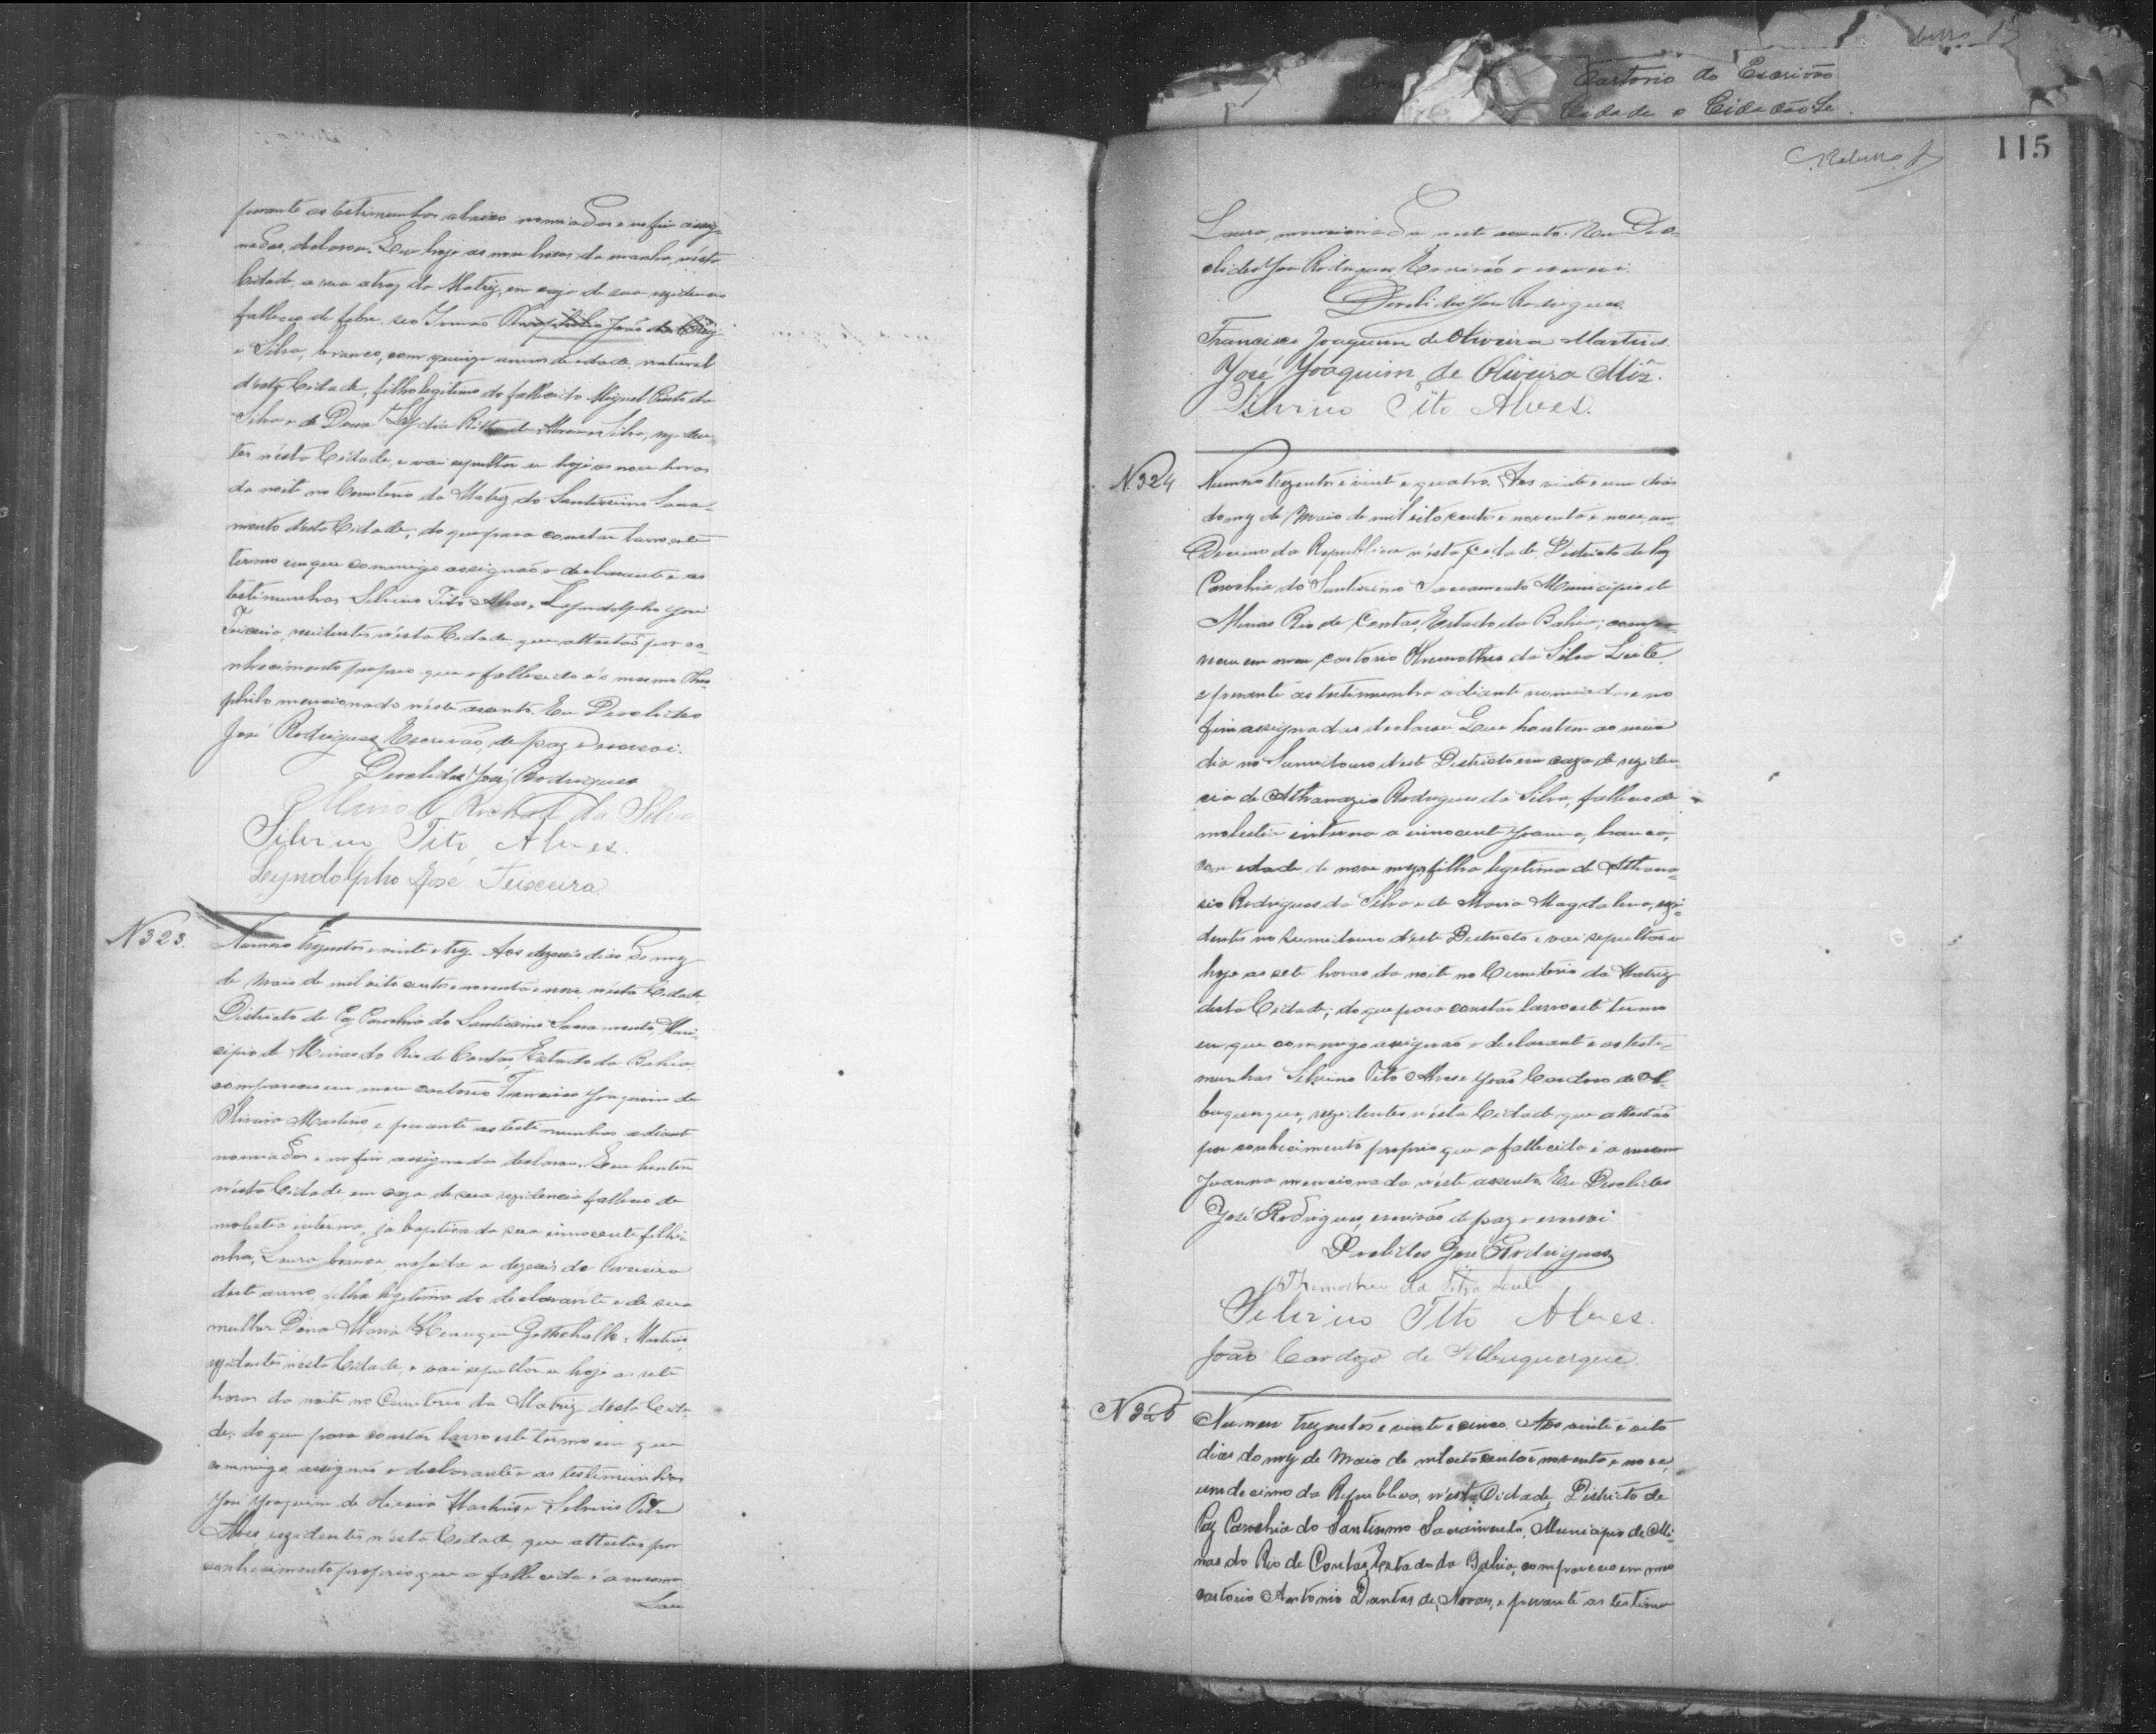 perante as testemunhas abaixo nomiadas e no fim assig-
nadas, declarou: Que hoje as nove horas da manhã, nésta
Cidade, a rua atraz da Matriz, em caza de sua rezidencia
falleceo de febre seo Irmão
e Silva, branco, com quinze annos de idade, natural
désta Cidade, filho legitimo do fallecido Miguel Pinto da
Silva e de Dona Silva, reziden-
tes nésta Cidade, e vai sepultar-se hoje as nove horas
da noite no Cemiterio da Matriz do Santissimo Sacra-
mento désta Cidade; do que para constar lavro este
termo em que commigo assignão o declarante e as
testimunhas Silvino Tito Alves, Leyndolpho José
Teixeira, rezidentes nésta Cidade, que attestão por co-
nhecimento proprio que o fallecido é o mesmo Theo-
philo mencionado néste assento. Eu Deoclides
José Rodrigues Escrivão de paz o escrevi.
Deoclides José Rodrigues
da Silva
Silvino Tito Alves.
Leyndolpho José Teixeira.
N 323.
Numero trezentos e vinte e trez. Aos dezeseis dias do mez
de Maio de mil oito centos e noventa e nove, nésta Cidade,
Districto de Paz Parochia do Santissimo Sacramento, Muni-
cipio de Minas do Rio de Contas, Estado da Bahia,
compareceo em meu cartorio Francisco Joaquim de
Oliveira Martins, e perante as testimunhas adiante
nomiadas e no fim assignadas declarou: Que hontem
nésta Cidade em caza de sua rezidencia falleceo de
molestia interna, já baptizada sua innocente filhi-
nha, Laura, branca, nascida a dezeseis de Fevereiro
deste anno, filha legitima do declarante e de sua
mulher Dona Maria Gottschalk Martins,
rezidentes nésta Cidade, e vai sepultar-se hoje as sete
horas da noite no Cemiterio da Matriz désta Cida-
de; do que para constar lavro este termo em que
commigo assignão o declarante e as testimunhas
José Joaquim de Oliveira Martins e Silvino Tito
Alves, rezidentes nésta Cidade, que attestão por
conhecimento proprio que a fallecida é a mesma
Lau
115
Cartorio do Escrivão
Cidade o Cidadão
Laura, mencionada neste assento. Eu Deo-
clides José Rodrigues, Escrivão o escrevi.
Deoclides José Rodrigues.
Francisco Joaquim de Oliveira Martins.
José Joaquim de Oliveira Miz.
Silvino Tito Alves.
N. 324
Numero trezentos e vinte e quatro. Aos vinte e um dias
do mez de Maio de mil oito centos e noventa e nove, un-
decimo da Republica nésta Cidade, Districto de Paz
Parochia do Santissimo Sacramento Municipio de
Minas Rio de Contas, Estado da Bahia; compa-
receu em meu cartorio da Silva Leite,
e perante as testimunhas adiante nomiadas e no
fim assignadas declarou: Que hontem ao meio
dia no Sumidouro déste Districto em caza de reziden-
cia de Athanazio Rodrigues da Silva, falleceo de
molestia interna a innocente Joanna, branca,
com idade de nove mezes, filha legitima de Athana-
sio Rodrigues da Silva e de Maria Magdalena, rezi-
dentes no Sumidouro d'este Districto e vai sepultar-se
hoje as sete horas da noite no Cemiterio da Matriz
desta Cidade; do que para constar lavro este termo
em que commigo assignão o declarante e as teste-
munhas Silvino Tito Alves e João Cardozo de Al-
buquerque, rezidentes nésta Cidade que attestão
por conhecimento proprio que a fallecida é a mesma
Joanna mencionada néste assento. Eu Deoclides
José Rodrigues, escrivão de paz o escrevi
Deoclides José Rodrigues
da Silva Leite
Silvino Tito Alves.
João Cardozo de Albuquerque
N 325
Numero trezentos e vinte e cinco. Aos vinte e oito
dias do mez de Maio de mil oito centos e noventa e nove,
undecimo da Republica, nésta Cidade, Districto de
Paz Parochia do Santissimo Sacramento, Municipio de Mi-
nas do Rio de Contas, Estado da Bahia, compareceo em meu
cartorio Antonio Dantas de Novaes, e perante as testimu